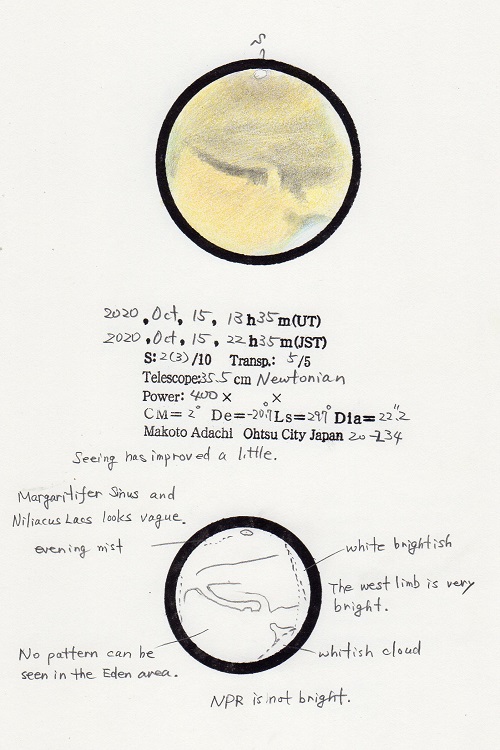 S
2020, Oct, 15, 13h35m(UT)
2020, Oct, 15, 22h35m(JST)
S:2(3)/10 Transp.: 5/5
Telescope:35.5 cm Newtonian
Power: 400 × ×
CM= 2° De= -20.°7 Ls= 297° Dia= 22".2
Makoto Adachi Ohtsu City Japan 20-134
Seeing has improved a little.
Margaritifer Sinus and
Niliacus Lacs looks vague.
evening mist
white brightish
The west limb is very
bright.
No pattern can be
seen in the Eden area.
whitish cloud
NPR is not bright.